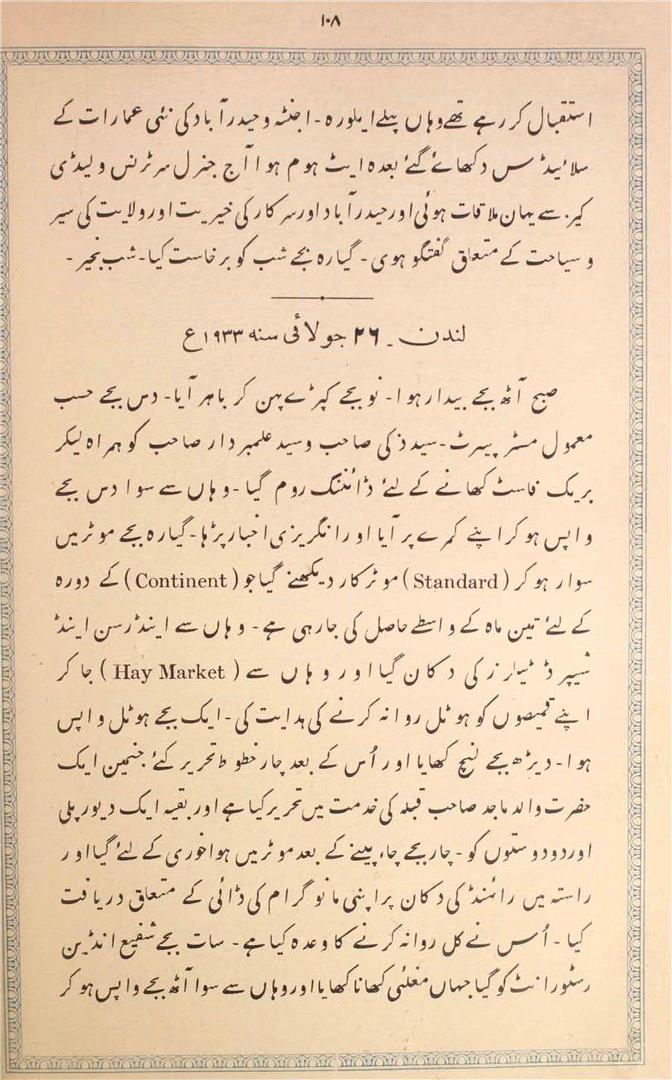 ۱۰۸
استقبال کر رہے تھے وہاں پہلے ایلورہ - اجنٹہ و حیدرآباد کی نئی عمارات کے
سلائیڈس دکھائے گئے بعدہ ایٹ ہوم ہوا آج جنرل سر ٹرنس و لیڈی
کیز سے یہاں ملاقات ہوئی اور حیدرآباد اور سرکار کی خیریت اور ولایت کی سیر
و سیاحت کے متعلق گفتگو ہوی - گیارہ بجے شب کو برخاست کیا - شب بخیر -
لندن - ۲۶ جولائی سنہ ۱۹۳۳ع
صبح آٹھ بجے بیدار ہوا - نو بجے کپڑے پہن کر باہر آیا - دس بجے حسب
معمول مسٹر پیرٹ - سید ذکی صاحب و سید علمبردار صاحب کو ہمراہ لیکر
بریک فاسٹ کھانے کے لئے ڈائننگ روم گیا - وہاں سے سوا دس بجے
واپس ہو کر اپنے کمرے پر آیا اور انگریزی اخبار پڑہا - گیارہ بجے موٹر میں
سوار ہو کر ( Standard ) موٹر کار دیکھنے گیا جو ( Continent ) کے دورہ
کے لئے تین ماہ کے واسطے حاصل کی جا رہی ہے - وہاں سے اینڈرسن اینڈ
شیپرڈ ٹیلرز کی دکان گیا اور وہاں سے ( Hay Market ) جا کر
اپنے قمیصوں کو ہوٹل روانہ کرنے کی ہدایت کی - ایک بجے ہوٹل واپس
ہوا - دیڑھ بجے لنچ کھایا اور اُس کے بعد چار خطوط تحریر کئے جنمین ایک
حضرت والد ماجد صاحب قبلہ کی خدمت میں تحریر کیا ہے اور بقیہ ایک دیورپلی
اور دو دوستوں کو - چار بجے چاء پینے کے بعد موٹر میں ہواخوری کے لئے گیا اور
راستہ میں رائمنڈ کی دکان پر اپنی مانوگرام کی ڈائی کے متعلق دریافت
کیا - اُس نے کل روانہ کرنے کا وعدہ کیا ہے - سات بجے شفیع انڈین
رسٹورانٹ کو گیا جہاں مغلئی کھانا کھایا اور وہاں سے سوا آٹھ بجے واپس ہو کر